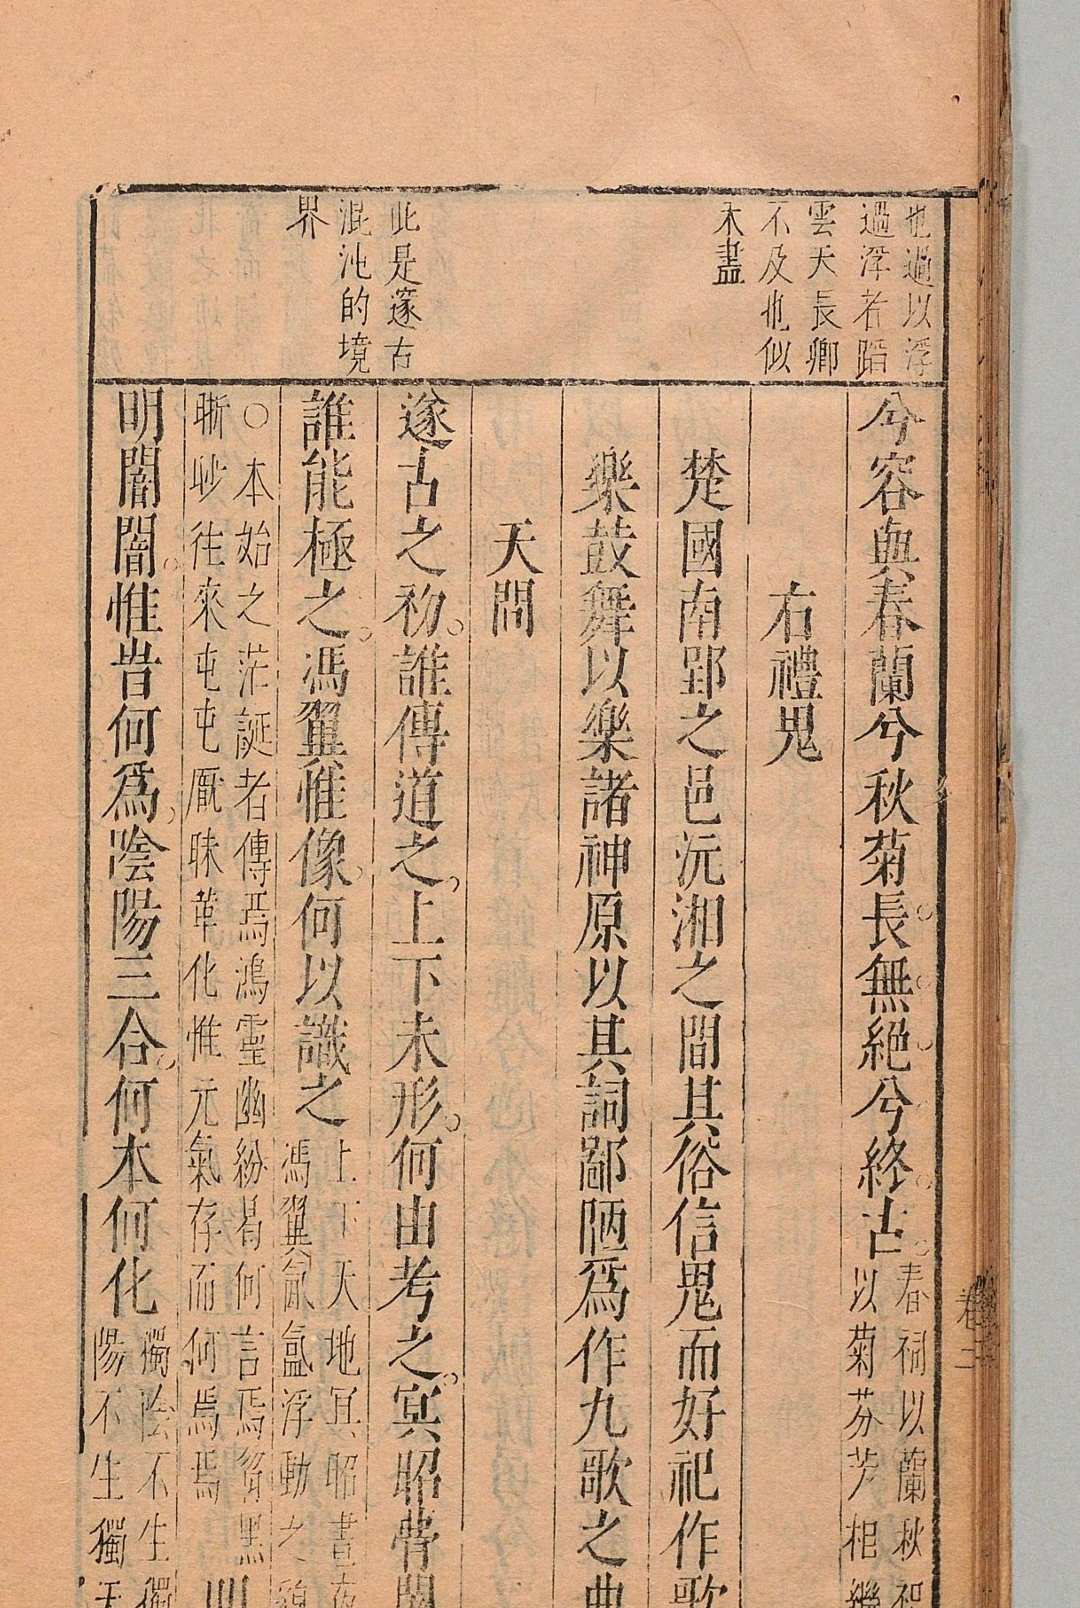 也過以浮
過浮若蹈
雲天長卿
不及也似
未盡
此是邃古
混沌的境
界
兮容與春蘭兮秋菊長無絕兮終古
春祠以蘭秋祀
以菊芬芳相繼
右禮䰟
楚國南郢之邑沅湘之間其俗信䰟而好祀作歌
樂鼓舞以樂諸神原以其詞鄙陋爲作九歌之曲
天問
遂古之初誰傳道之上下未形何由考之冥昭瞢闇
誰能極之馮翼惟像何以識之
上下天地冥昭晝夜
馮翼氤氳浮動之貌
○本始之茫誕者傳焉鴻靈幽紛曷何言焉曶黑
晣眇往來屯屯厖昧革化惟元氣存而何焉焉
明闇闇惟旹何爲陰陽三合何本何化
獨陰不生獨
陽不生獨天
卷二